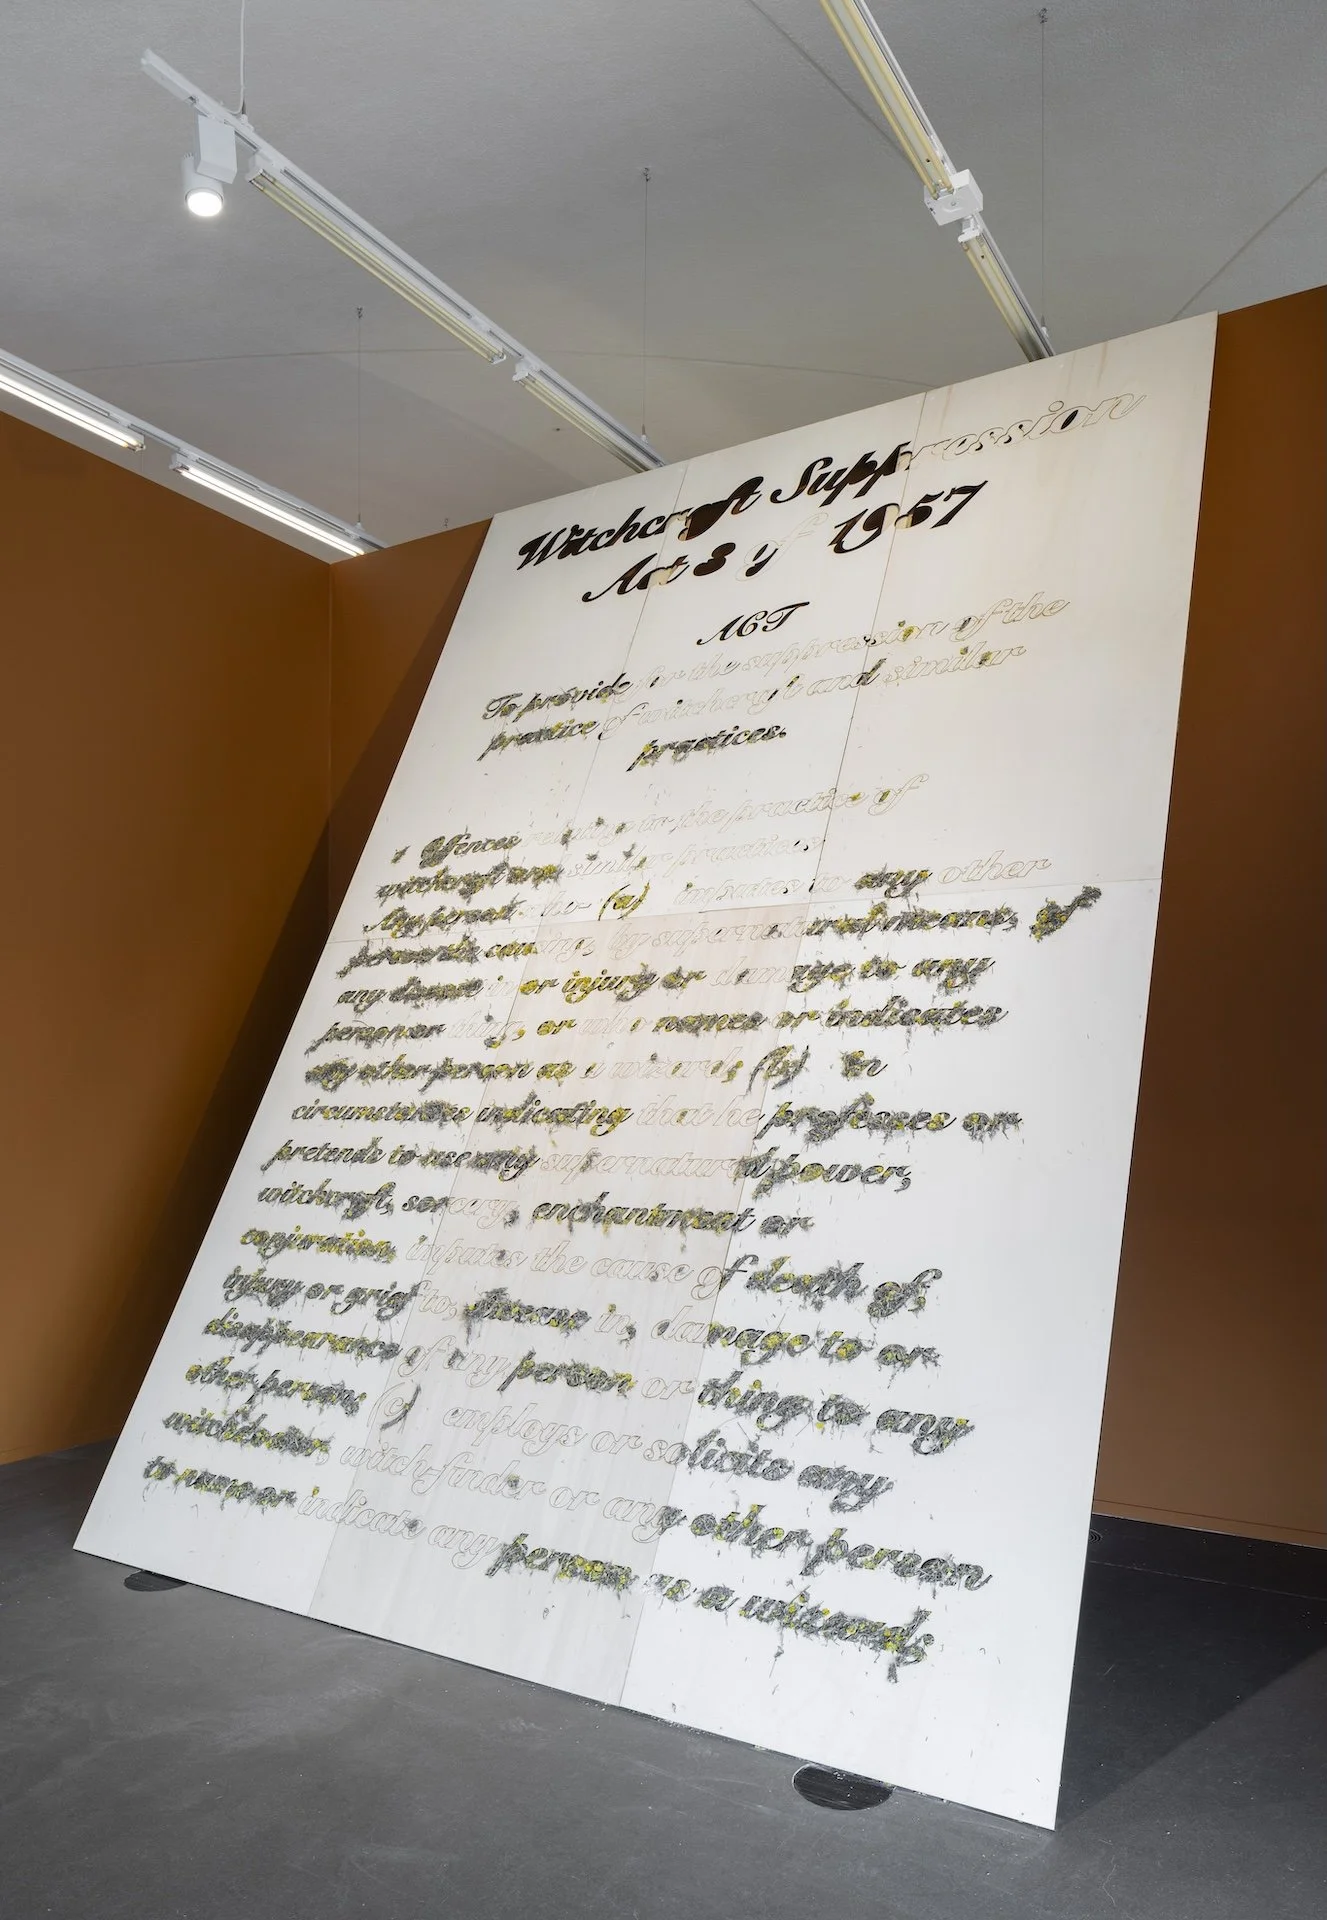 Witchcraft Suppression
Act 3 of 1957
ACT
To provide for the suppression of the
practice of witchcraft and similar
practices.
1 Offences relating to the practice of
witchcraft and similar practices
Any person who- (a) imputes to any other
person the causing, by supernatural means, of
any disease in or injury or damage to any
person or thing, or who names or indicates
any other person as a wizard; (b) in
circumstances indicating that he professes or
pretends to use any supernatural power,
witchcraft, sorcery, enchantment or
conjuration, imputes the cause of death of,
injury or grief to, disease in, damage to or
disappearance of any person or thing to any
other person; (c) employs or solicits any
witchdoctor, witch-finder or any other person
to name or indicate any person as a wizard;